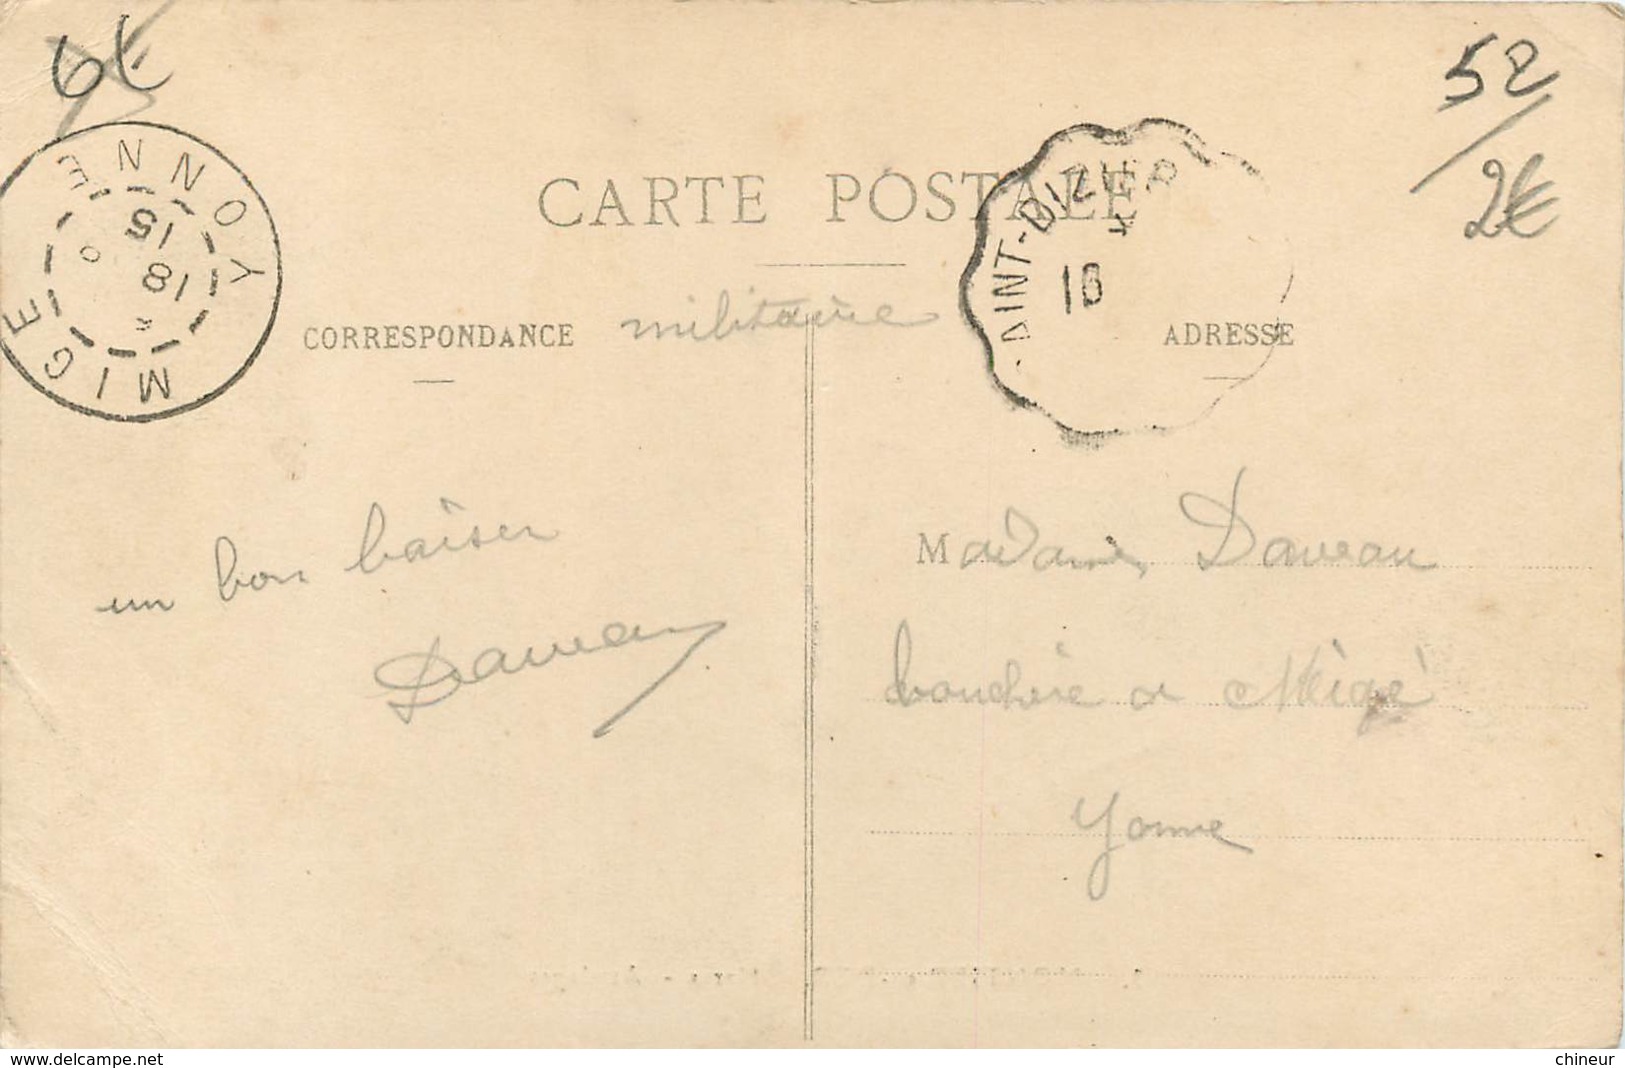 6€
52
2€
YONNE
18
15
MIGE
CARTE POSTALE
AINT-DIZIER
16
CORRESPONDANCE
militaire
ADRESSE
un bon baiser
Daveau
Madame Daveau
bouchère a Migé
Yonne
www.delcampe.net
chineur